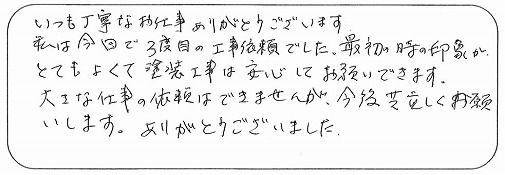 いつも丁寧なお仕事ありがとうございます
私は今回で3度目の工事依頼でした。最初の時の印象が、
とてもよくて塗装工事は安心してお願いできます。
大きな仕事の依頼はできませんが、今後共宜しくお願
いします。ありがとうございました.